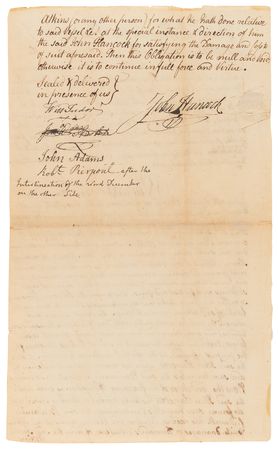 Atkins, or any other person for what he hath done relative
to said Vessel &c. at the special instance & direction of him
the said John Hancock for satisfying the Damage and Cost
of suit aforesaid. Then this Obligation is to be null and void
otherwise it is to continue in full force and virtue.
Sealed & delivered
in presence of us
Wm Tudor
John Hancock
John Adams
Robt. Pierpont, after the
Interlineation of the word December
on the other Side